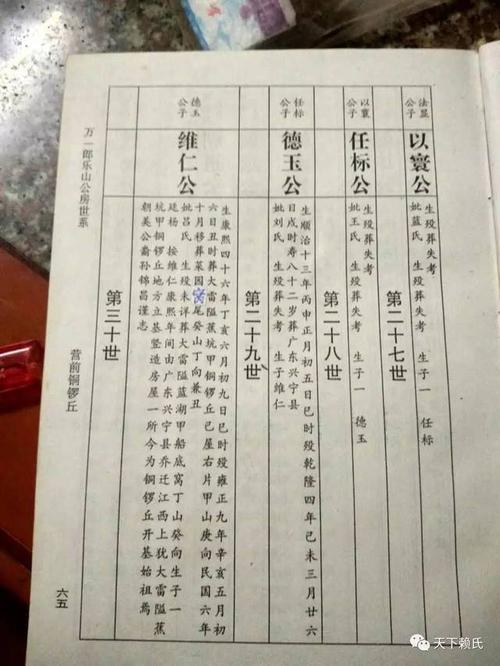 法显公子
以寰公
生殁葬失考
妣蓝氏 生殁葬失考 生子一 任标
第二十七世
以寰公子
任标公
生殁葬失考
妣王氏 生殁葬失考 生子一 德玉
第二十八世
任标公子
德玉公
生顺治十三年丙申正月初五日巳时殁乾隆四年己未三月廿六
日戌时寿八十二岁葬广东兴宁县
妣刘氏 生殁葬失考 生子维仁
第二十九世
德玉公子
维仁公
生康熙四十六年丁亥六月初九日巳时殁雍正九年辛亥五月初
六日丑时葬大雷隘蕉坑甲铜锣丘已屋右片甲山庚向民国六年
十月移葬菜园窝尾癸山丁向兼丑
妣吕氏 生殁未详葬大雷隘蓝湖甲船底窝丁山癸向生子一
廷杨 按维仁康熙年间由广东兴宁县乔迁江西上犹大雷隘蕉
坑甲铜锣丘地方立基竖造房屋一所今为铜锣丘开基始祖焉
朝美公裔孙锦昌谨志
第三十世
万一郎乐山公房世系
营前铜锣丘
六五
天下赖氏